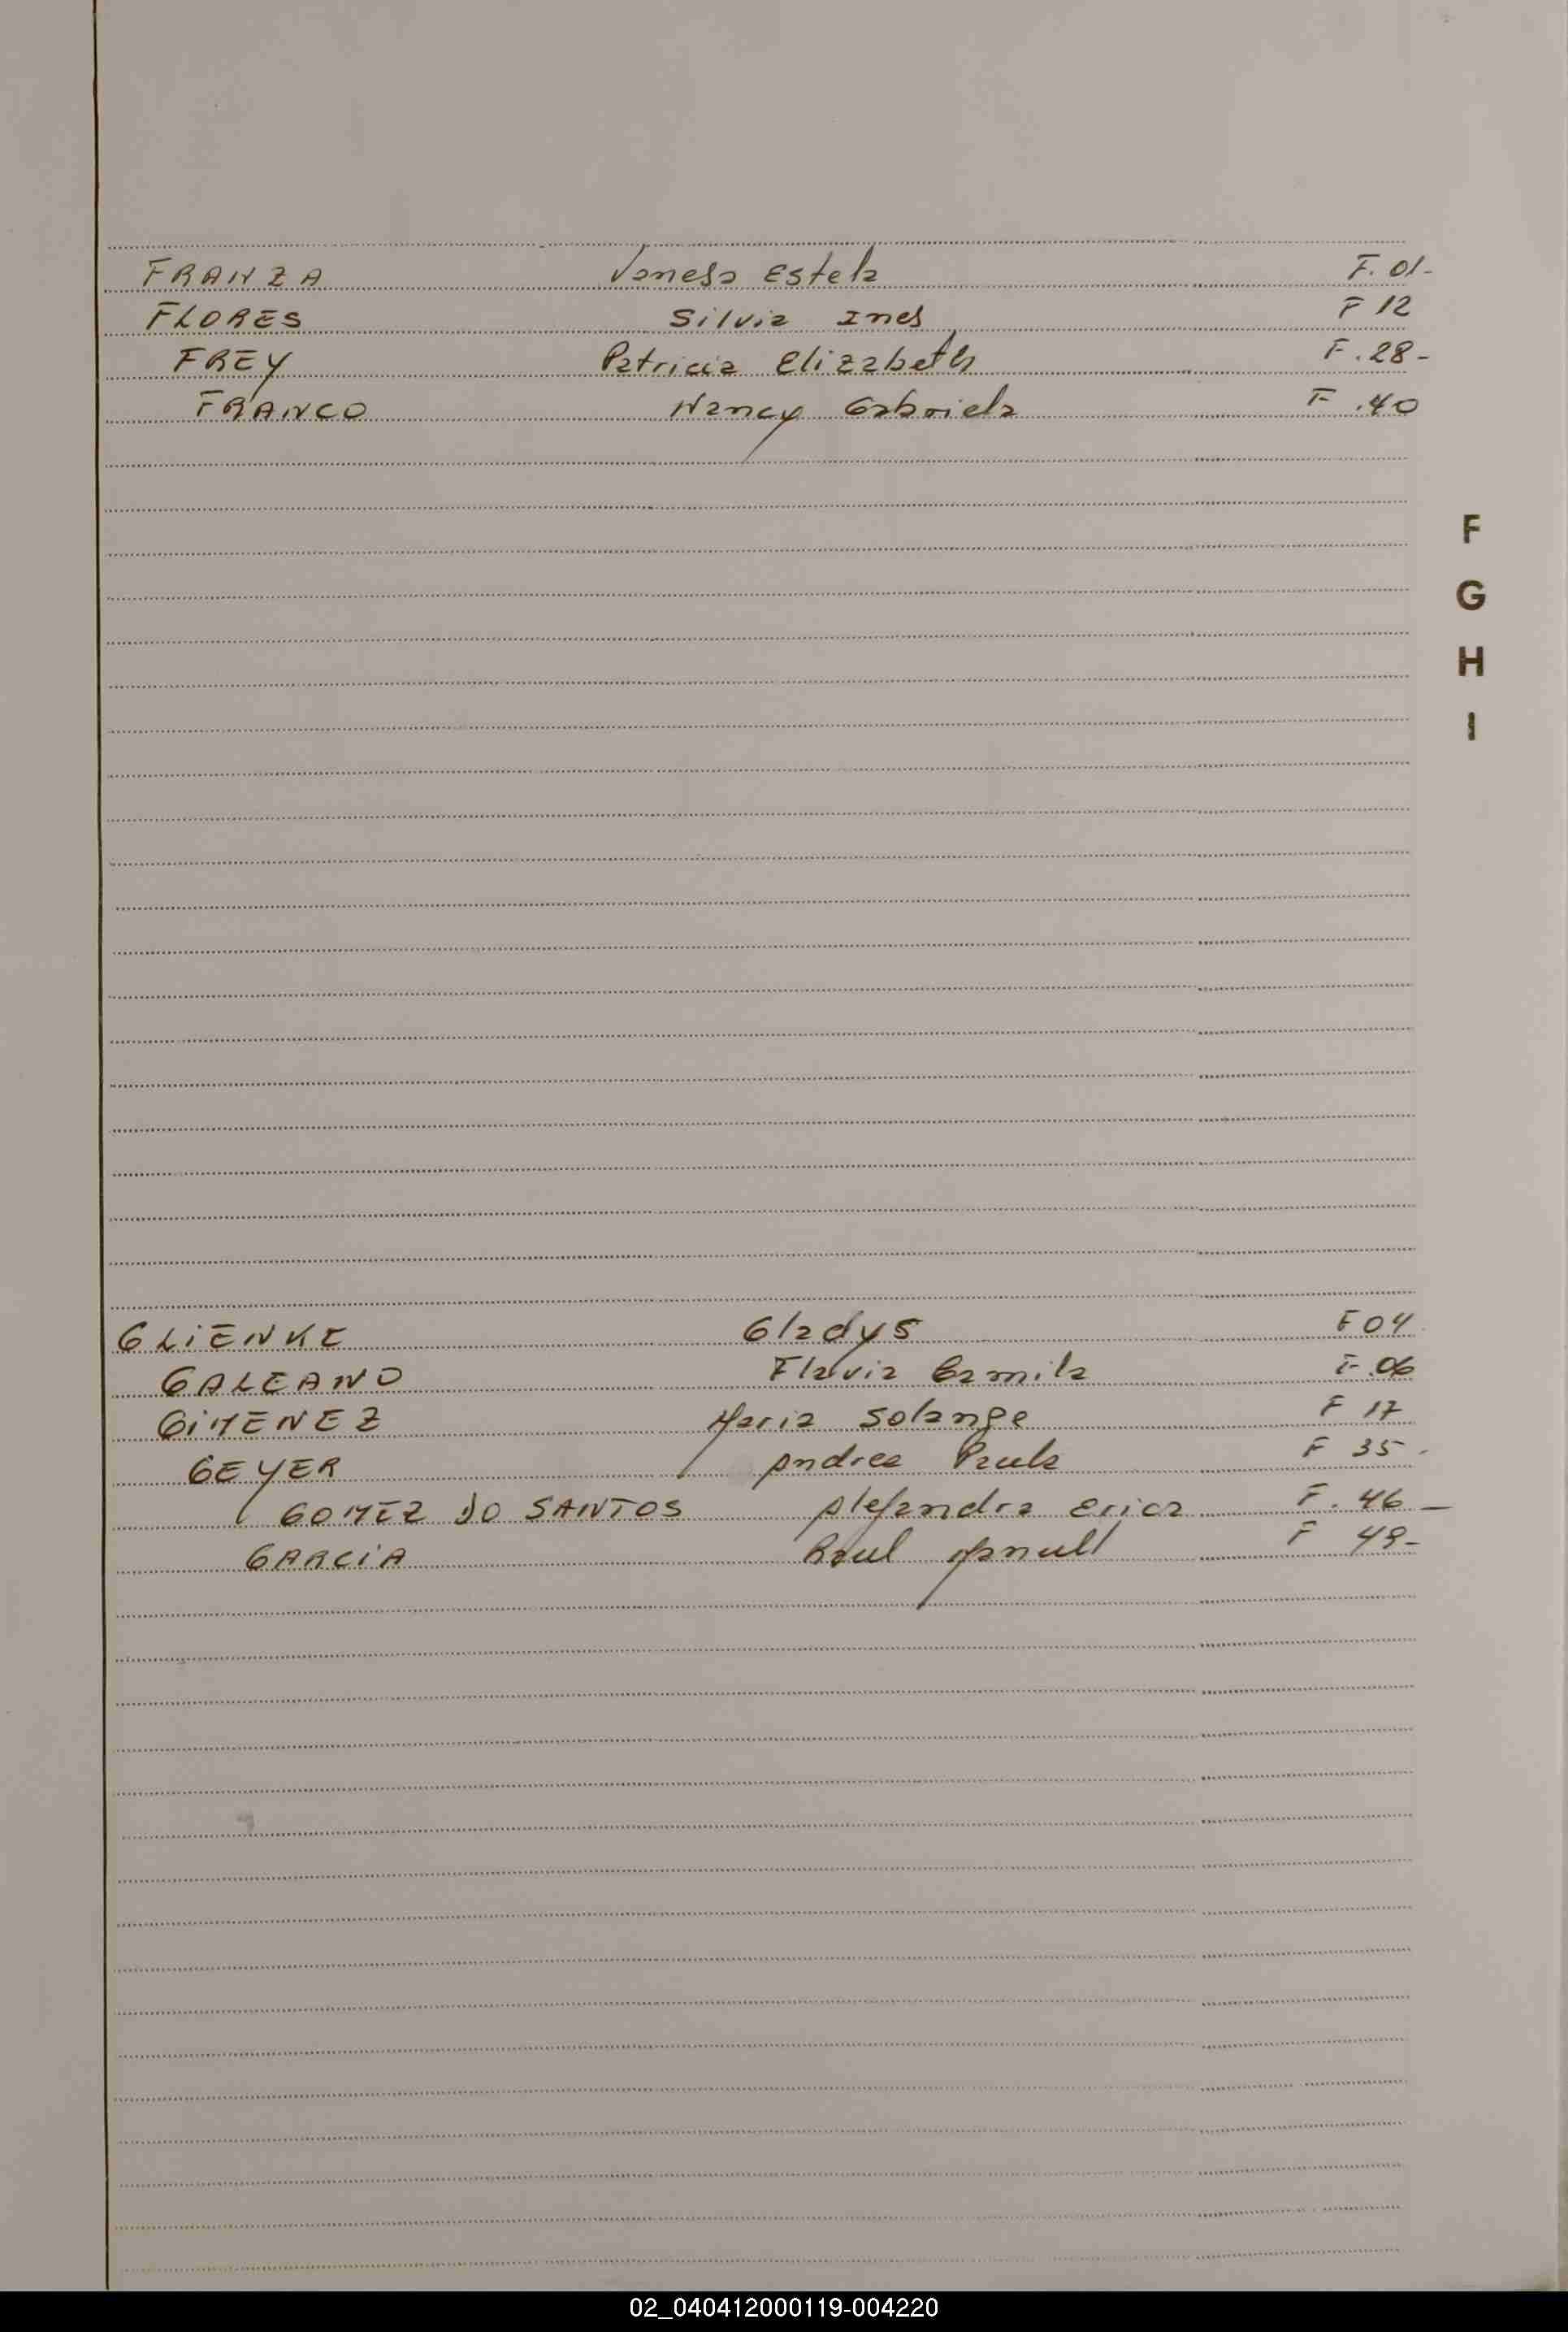 FRANZA Vanesa Estela F. 01-
FLORES Silvia Ines F 12
FREY Patricia Elizabeth F. 28-
FRANCO Nancy Gabriela F. 40
F
G
H
I
GLiENKE Gladys F 04
GALEANO Flavia Camila F. 06
GiMENEZ Maria Solange F 17
GEYER Andrea Paula F 35-
GOMEZ DO SANTOS Alejandra Erica F. 46-
GARCiA Raul F 49-
02_040412000119-004220